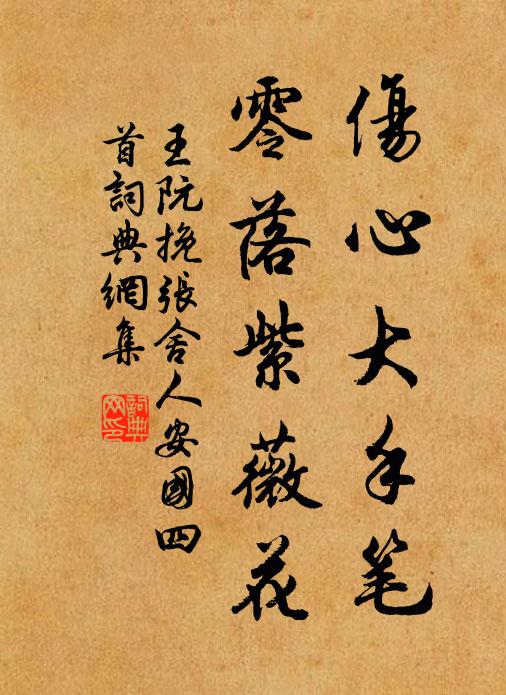 傷心大手笔
零落紫薇花
王阮挽張舍人安國四
首詞典網集
詞典
网印